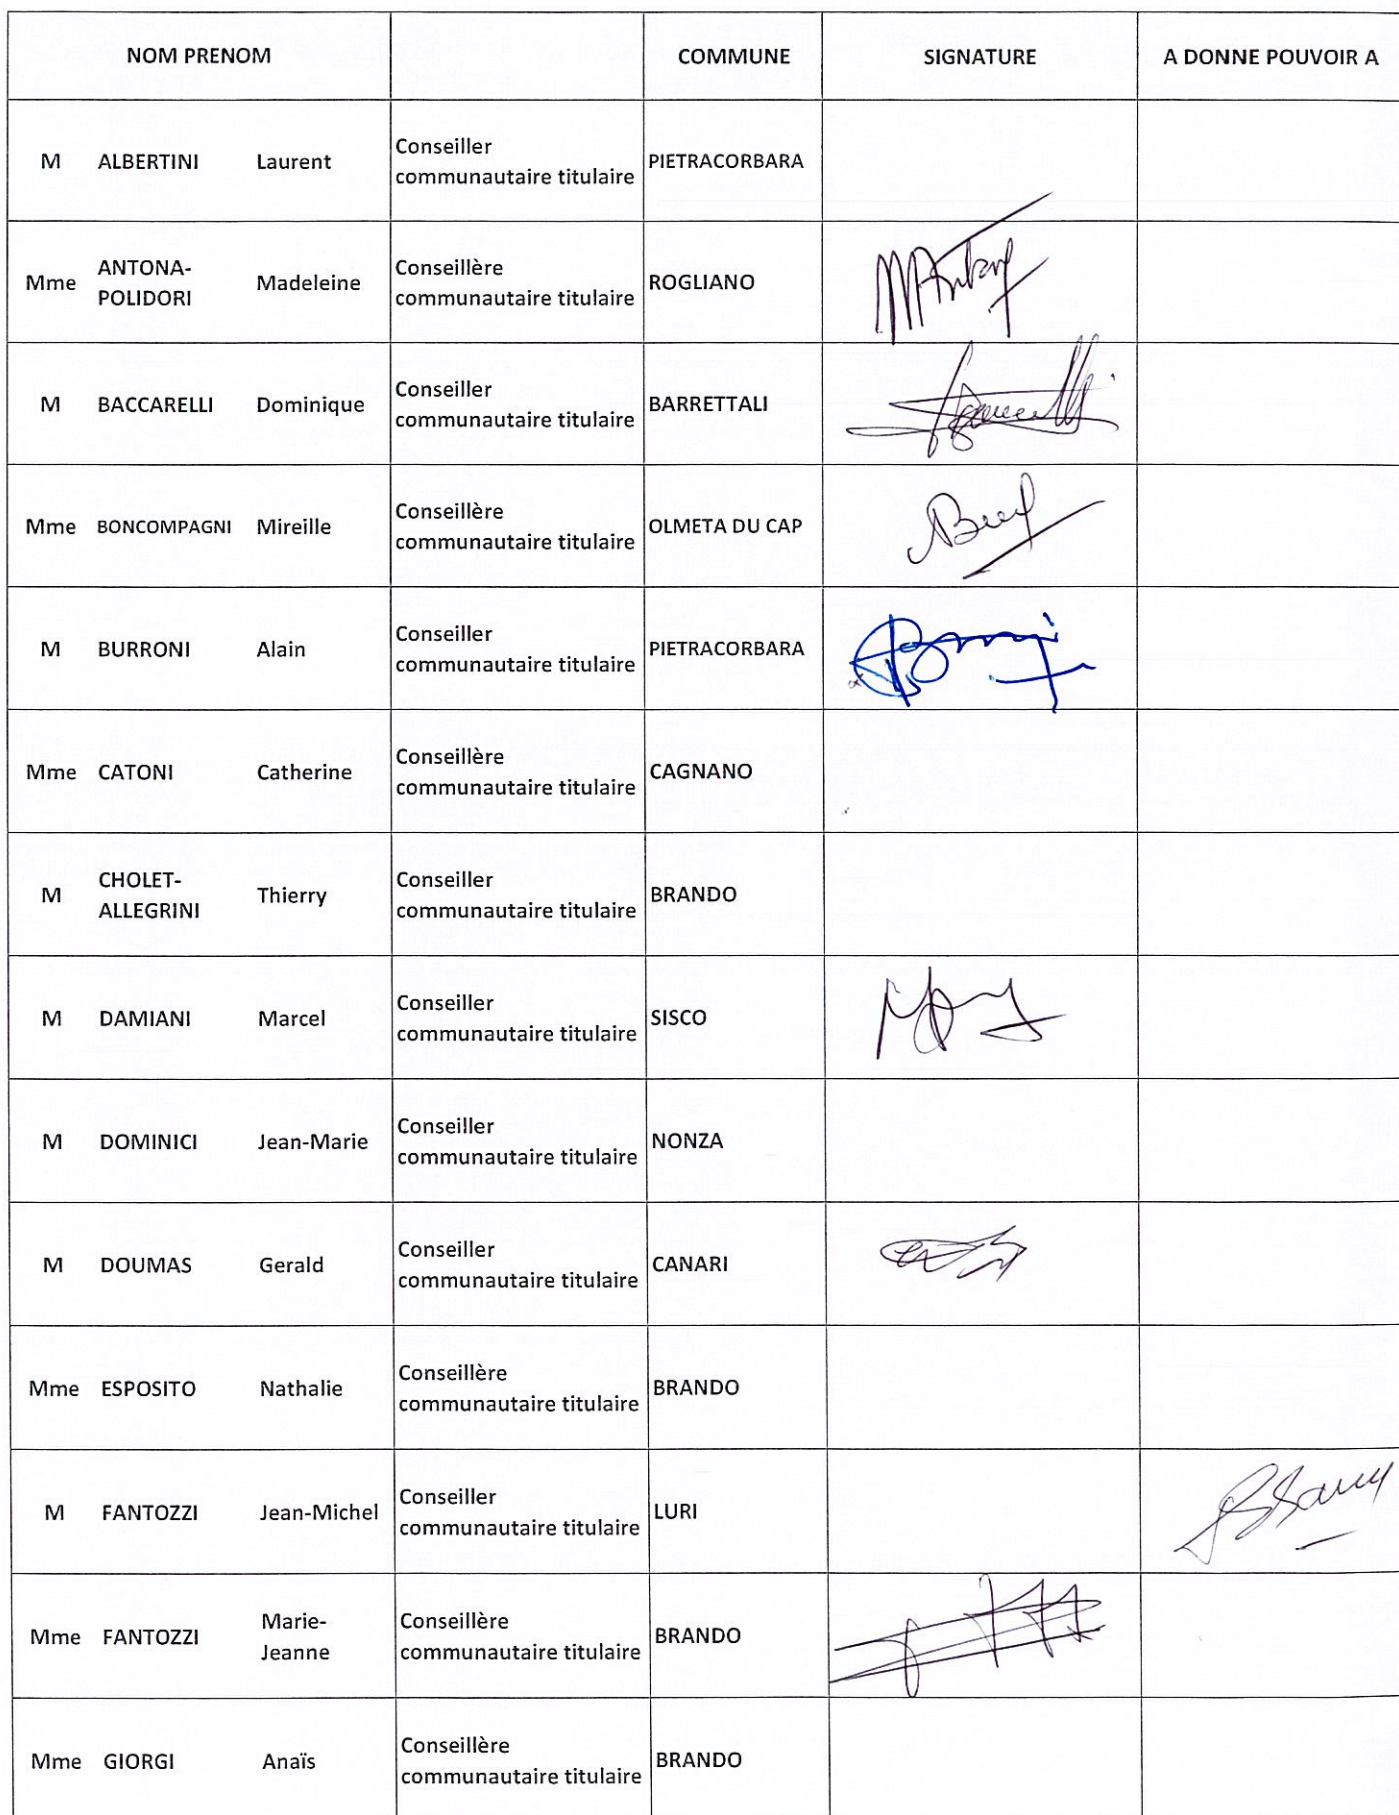 NOM PRENOM COMMUNE SIGNATURE A DONNE POUVOIR A
M ALBERTINI Laurent Conseiller communautaire titulaire PIETRACORBARA
Mme ANTONA-POLIDORI Madeleine Conseillère communautaire titulaire ROGLIANO
M BACCARELLI Dominique Conseiller communautaire titulaire BARRETTALI
Mme BONCOMPAGNI Mireille Conseillère communautaire titulaire OLMETA DU CAP
M BURRONI Alain Conseiller communautaire titulaire PIETRACORBARA
Mme CATONI Catherine Conseillère communautaire titulaire CAGNANO
M CHOLET-ALLEGRINI Thierry Conseiller communautaire titulaire BRANDO
M DAMIANI Marcel Conseiller communautaire titulaire SISCO
M DOMINICI Jean-Marie Conseiller communautaire titulaire NONZA
M DOUMAS Gerald Conseiller communautaire titulaire CANARI
Mme ESPOSITO Nathalie Conseillère communautaire titulaire BRANDO
M FANTOZZI Jean-Michel Conseiller communautaire titulaire LURI
Mme FANTOZZI Marie-Jeanne Conseillère communautaire titulaire BRANDO
Mme GIORGI Anaïs Conseillère communautaire titulaire BRANDO